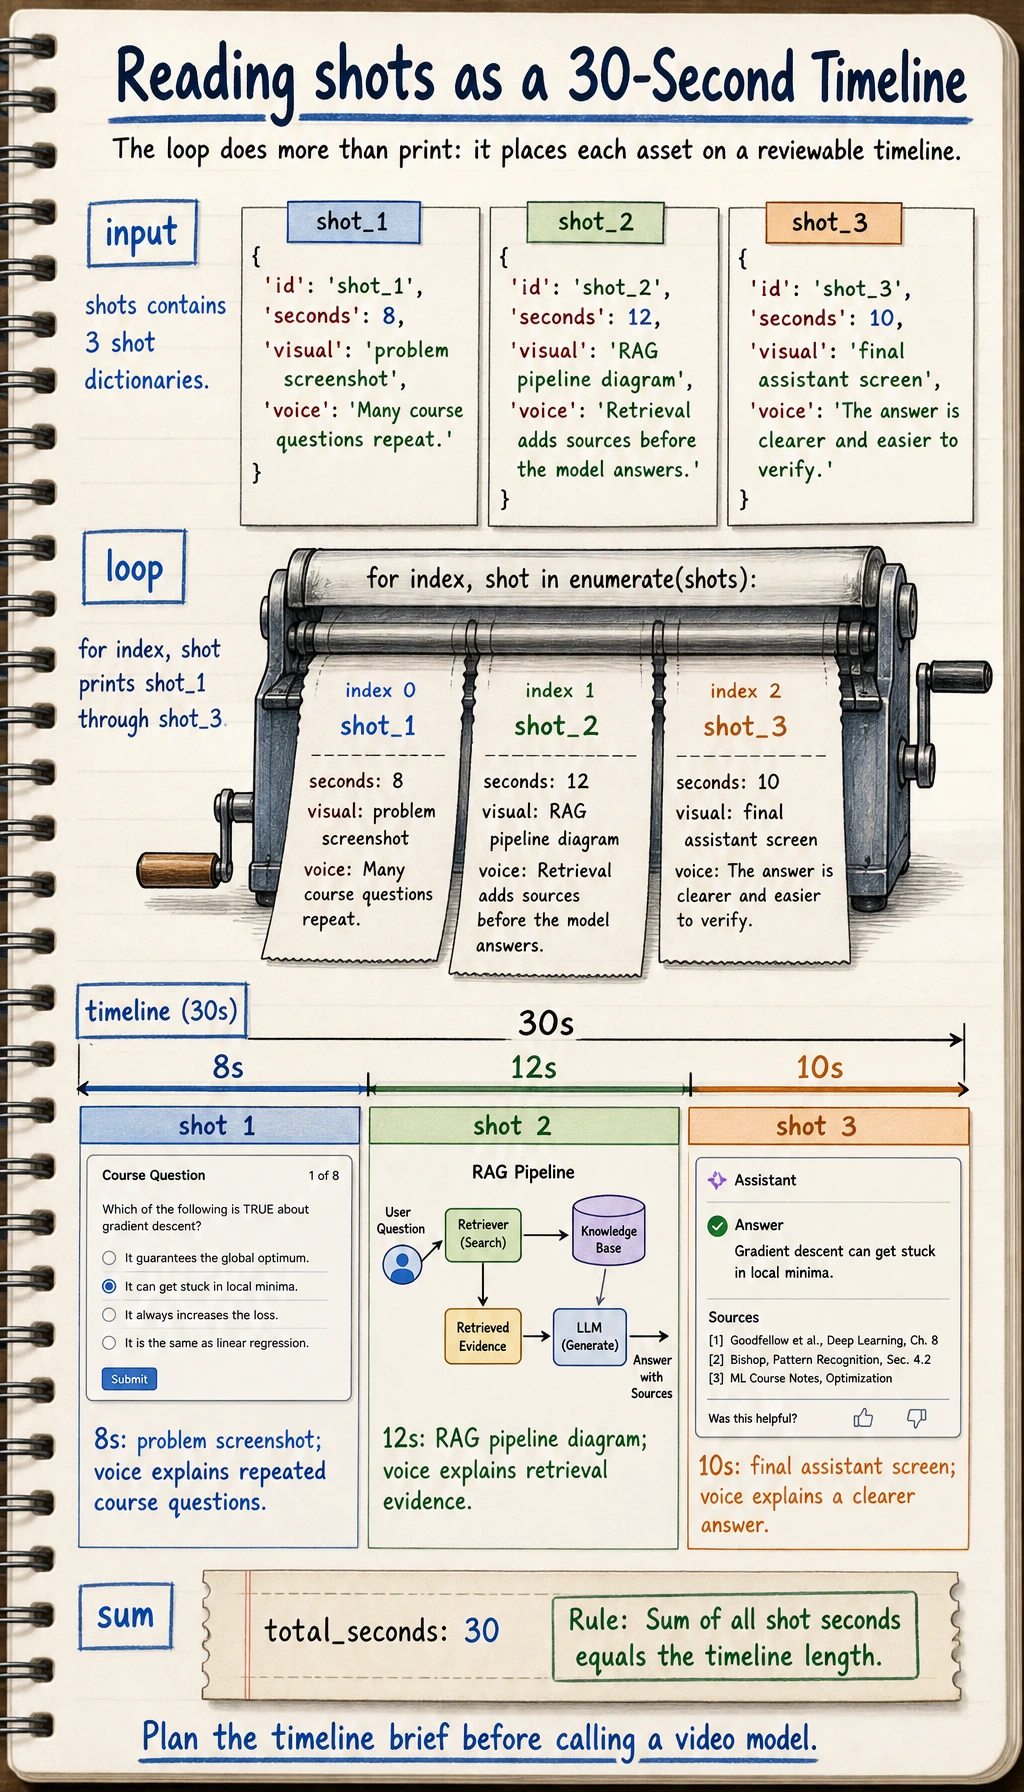 Reading shots as a 30-Second Timeline
The loop does more than print: it places each asset on a reviewable timeline.
input
shots contains
3 shot
dictionaries.
shot_1
{
'id': 'shot_1',
'seconds': 8,
'visual': 'problem
screenshot',
'voice': 'Many course
questions repeat.'
}
shot_2
{
'id': 'shot_2',
'seconds': 12,
'visual': 'RAG
pipeline diagram',
'voice': 'Retrieval
adds sources before
the model answers.'
}
shot_3
{
'id': 'shot_3',
'seconds': 10,
'visual': 'final
assistant screen',
'voice': 'The answer is
clearer and easier to
verify.'
}
loop
for index, shot
prints shot_1
through shot_3.
for index, shot in enumerate(shots):
index 0
shot_1
seconds: 8
visual: problem
screenshot
voice: Many
course questions
repeat.
index 1
shot_2
seconds: 12
visual: RAG
pipeline diagram
voice: Retrieval
adds sources
before the model
answers.
index 2
shot_3
seconds: 10
visual: final
assistant screen
voice: The answer is
clearer and easier
to verify.
timeline (30s)
30s
8s
12s
10s
shot 1
Course Question
1 of 8
Which of the following is TRUE about
gradient descent?
It guarantees the global optimum.
It can get stuck in local minima.
It always increases the loss.
It is the same as linear regression.
Submit
8s: problem screenshot;
voice explains repeated
course questions.
shot 2
RAG Pipeline
User
Question
Retriever
(Search)
Knowledge
Base
Retrieved
Evidence
LLM
(Generate)
Answer
with
Sources
12s: RAG pipeline diagram;
voice explains retrieval
evidence.
shot 3
Assistant
Answer
Gradient descent can get stuck
in local minima.
Sources
[1] Goodfellow et al., Deep Learning, Ch. 8
[2] Bishop, Pattern Recognition, Sec. 4.2
[3] ML Course Notes, Optimization
Was this helpful?
10s: final assistant screen;
voice explains a clearer
answer.
sum
total_seconds: 30
Rule: Sum of all shot seconds
equals the timeline length.
Plan the timeline brief before calling a video model.